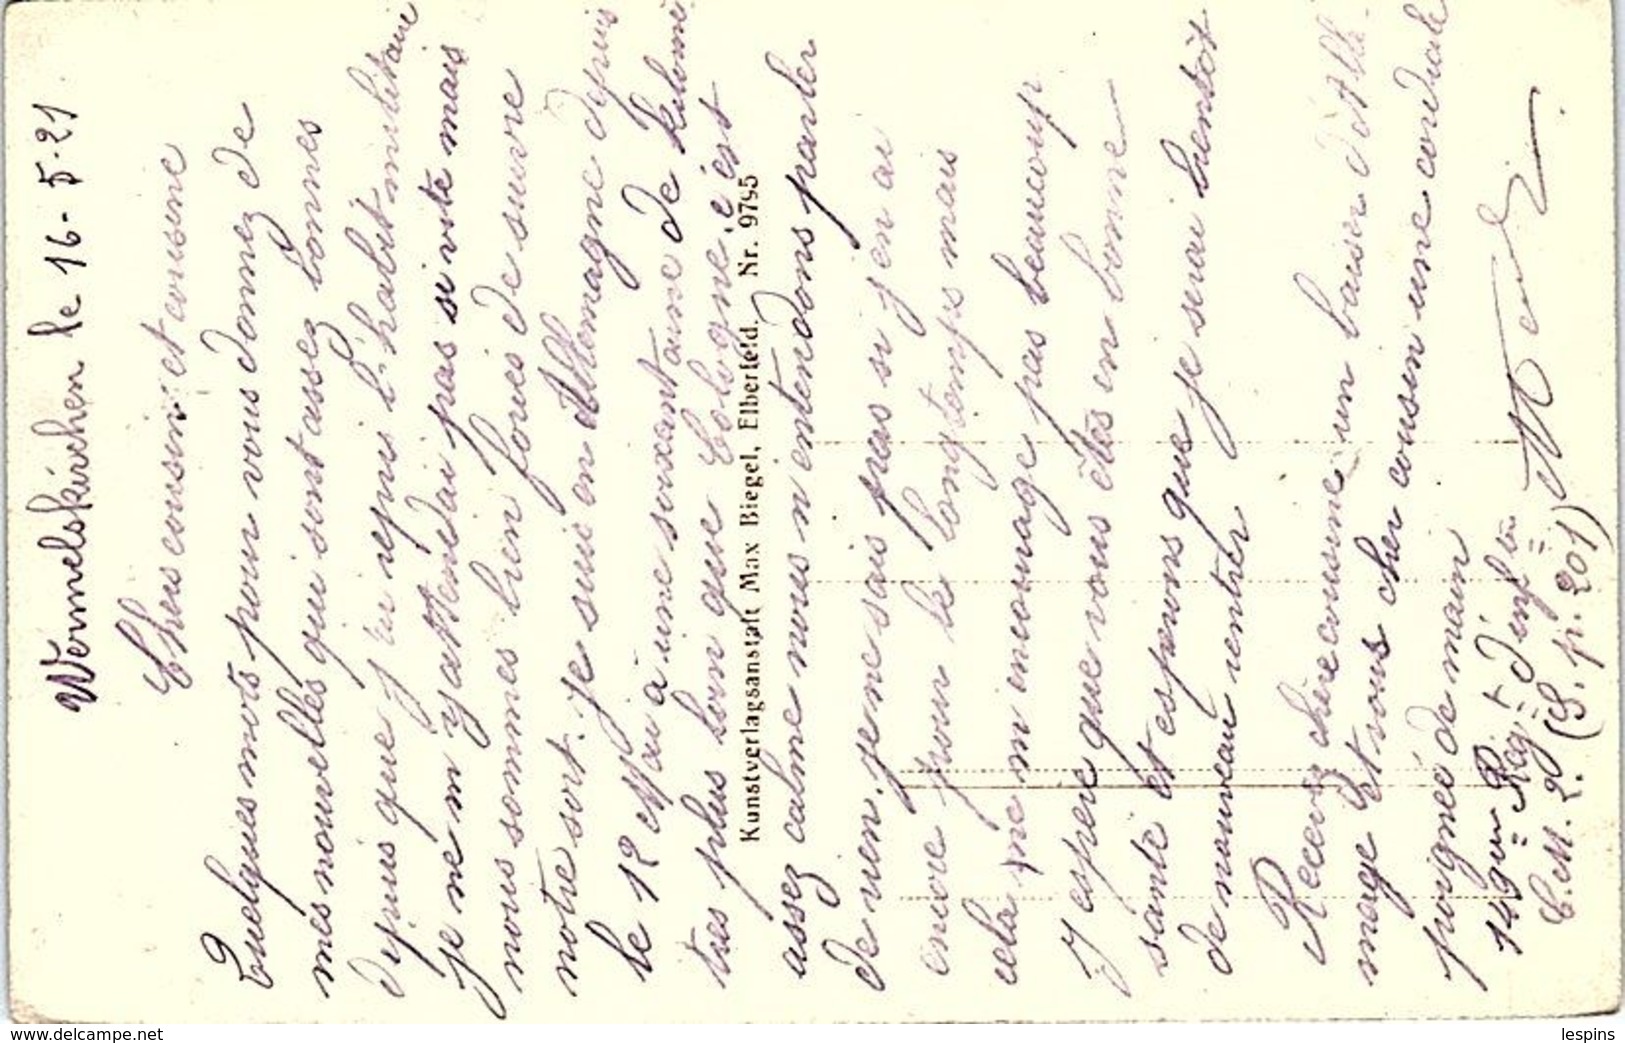 Wermelskirchen le 16-5-21
Chers cousin et cousine
Quelques mots pour vous donner de
mes nouvelles qui sont assez bonnes
depuis que j'ai repris l'habit militaire
je ne m'y attendai pas si vite mais
nous sommes bien forcés de suivre
notre sort. je suis en Allemagne depuis
le 12 Mai à une soixantaine de kilomè-
tres plus loin que Cologne, c'est
Kunstverlagsanstalt Max Biegel, Elberfeld. Nr. 9795
assez calme nous n'entendons parler
de rien. je ne sais pas si j'en ai
encore pour le longtemps mais
cela ne m'encourage pas beaucoup
J'espère que vous êtes en bonne
santé et espérons que je serai bientôt
de nouveau rentrer
Recevez chère cousine un baiser d'All-
magne Et vous cher cousin une cordiale
poignée de main
149em Reg.t d'inf.ie
C.M. 2 (S.p. 201)
delcampe.net
lespins